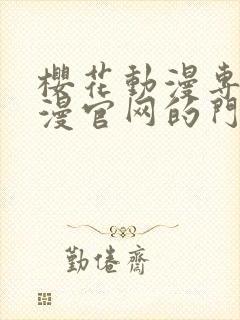 櫻花動漫專
漫官网的門
勤倦齋